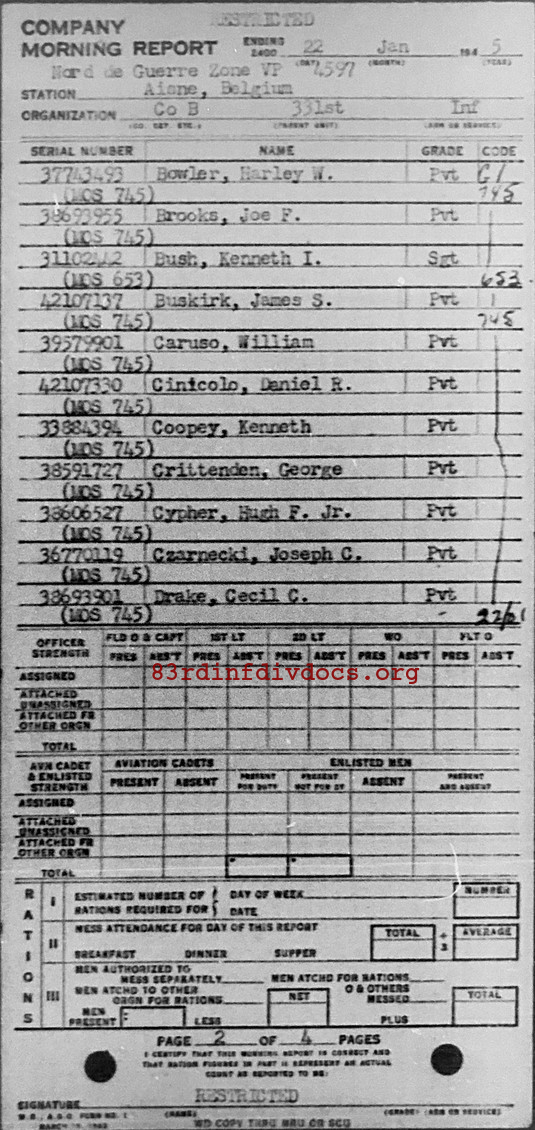 RESTRICTED
COMPANY
MORNING REPORT ENDING 2400 22 Jan 194 5
(DAY) (MONTH) (YEAR)
Nord de Guerre Zone VP 4597
STATION Aisne, Belgium
ORGANIZATION Co B 331st Inf
(CO. DET. ETC.) (PARENT UNIT) (ARM OR SERVICE)
SERIAL NUMBER NAME GRADE CODE
37743493 Bowler, Harley W. Pvt
(MOS 745) 745
38693955 Brooks, Joe F. Pvt
(MOS 745)
31102442 Bush, Kenneth I. Sgt
(MOS 653) 653
42107137 Buskirk, James S. Pvt
(MOS 745) 745
39579901 Caruso, William Pvt
(MOS 745)
42107330 Cinicolo, Daniel R. Pvt
(MOS 745)
33884394 Coopey, Kenneth Pvt
(MOS 745)
38591727 Crittenden, George Pvt
(MOS 745)
38606527 Cypher, Hugh F. Jr. Pvt
(MOS 745)
36770119 Czarnecki, Joseph C. Pvt
(MOS 745)
38693901 Drake, Cecil C. Pvt
(MOS 745)
OFFICER STRENGTH FLD O & CAPT 1ST LT 2D LT WO FLT O
PRES ABS'T PRES ABS'T PRES ABS'T PRES ABS'T PRES ABS'T
83rdinfdivdocs.org
ASSIGNED
ATTACHED UNASSIGNED
ATTACHED FR OTHER ORGN
TOTAL
AVN CADET & ENLISTED STRENGTH AVIATION CADETS ENLISTED MEN
PRESENT ABSENT PRESENT FOR DUTY PRESENT NOT FOR DY ABSENT PRESENT AND ABSENT
ASSIGNED
ATTACHED UNASSIGNED
ATTACHED FR OTHER ORGN
TOTAL
RATIONS
I ESTIMATED NUMBER OF RATIONS REQUIRED FOR DAY OF WEEK DATE NUMBER
II MESS ATTENDANCE FOR DAY OF THIS REPORT TOTAL ÷ 3 AVERAGE
BREAKFAST DINNER SUPPER
III MEN AUTHORIZED TO MESS SEPARATELY MEN ATCHD FOR RATIONS
MEN ATCHD TO OTHER ORGN FOR RATIONS NET O & OTHERS MESSED TOTAL
MEN PRESENT LESS PLUS
PAGE 2 OF 4 PAGES
I CERTIFY THAT THIS MORNING REPORT IS CORRECT AND
THAT RATION FIGURES IN PART III REPRESENT AN ACTUAL
COUNT AS REPORTED TO ME:
RESTRICTED
SIGNATURE
(NAME) (GRADE) (ARM OR SERVICE)
W.D., A.G.O. FORM NO. 1
MARCH 15, 1943
WD COPY THRU MRU OR SCU